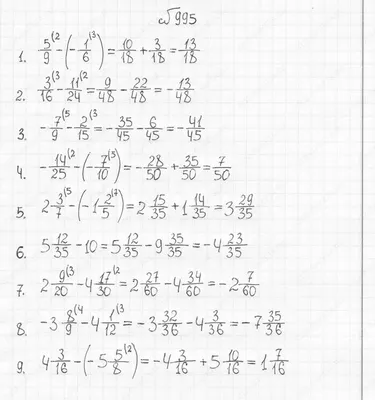 №995
1. 5/9(2 - (-1/6(3) = 10/18 + 3/18 = 13/18
2. 3/16(3 - 11/24(2 = 9/48 - 22/48 = -13/48
3. -7/9(5 - 2/15(3 = -35/45 - 6/45 = -41/45
4. -14/25(2 - (-7/10(5) = -28/50 + 35/50 = 7/50
5. 2 3/7(5 - (-1 2/5(7) = 2 15/35 + 1 14/35 = 3 29/35
6. 5 12/35 - 10 = 5 12/35 - 9 35/35 = -4 23/35
7. 2 9/20(3 - 4 17/30(2 = 2 27/60 - 4 34/60 = -2 7/60
8. -3 8/9(4 - 4 1/12(3 = -3 32/36 - 4 3/36 = -7 35/36
9. 4 3/16 - (-5 5/8(2) = -4 3/16 + 5 10/16 = 1 7/16